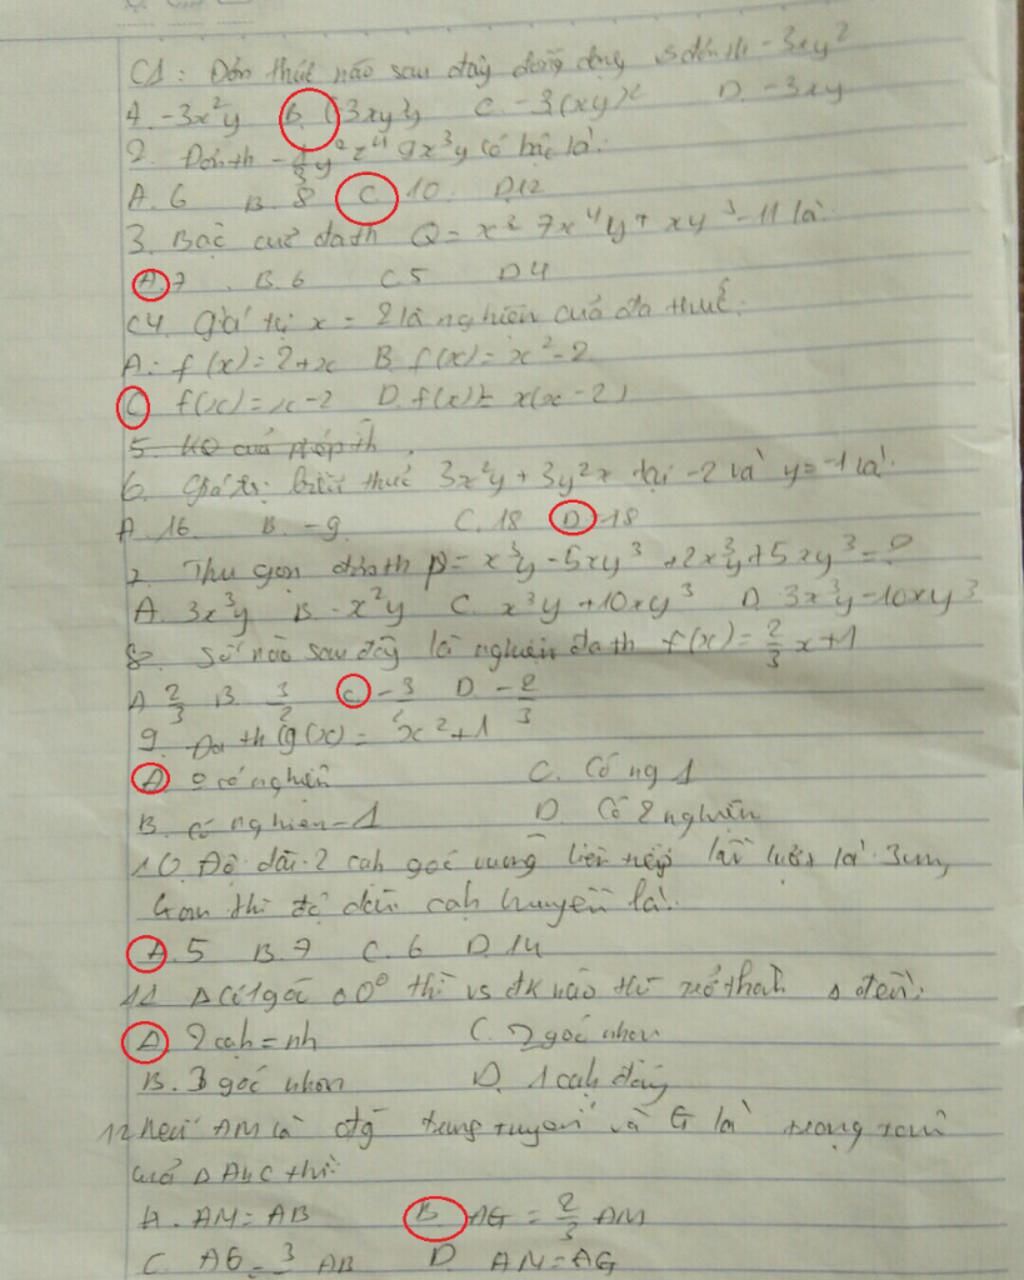 C1: Đơn thức nào sau đây đồng dạng vs đơn th -3xy²
A. -3x²y B. (-3xy)y C. -3(xy)² D. -3xy
2. Đơn th -1/3 y² z⁴ 9x³y có bậc là:
A. 6 B. 8 C. 10. D. 12
3. Bậc cuả đa th Q = x³ 7x⁴y + xy³ - 11 là
A. 7 B. 6 C. 5 D 4
C4. giá trị x = 2 là nghiệm cuả đa thức:
A: f(x) = 2+x B. f(x) = x² - 2
C f(x) = x - 2 D. f(x) = x(x - 2)
5. KQ cuả phép th
6. giá trị biểu thức 3x²y + 3y²x tại -2 và y = -1 là:
A. 16 B. -9 C. 18 D -18
7. Thu gọn đa th P = x³y - 5xy³ + 2x³y + 5xy³ = ?
A. 3x³y B. -x²y C. x³y + 10xy³ D. 3x³y - 10xy³
8. Số nào sau đây là nghiệm đa th f(x) = 2/3 x + 1
A 2/3 B. 3/2 C. -3/2 D. -2/3
9. Đa th g(x) = x² + 1
A 0 có nghiệm C. Có ng 1
B. có nghiệm -1 D. Có 2 nghiệm
10. Độ dài 2 cạh góc vuông liên tiếp lần lượt là 3cm,
4cm thì độ dài cạh huyền là:
A. 5 B. 7 C. 6 D. 14
11 Δ có 1 góc 60⁰ thì vs đk nào thì trở thah Δ đều:
A. 2 cạh = nh C. 2 góc nhọn
B. 3 góc nhọn D. 1 cạh đáy
12 Nếu AM là đg trung tuyến và G là trọng tâm
cuả Δ ABC thì:
A. AM = AB B. AG = 2/3 AM
C. AG = 3 AB D. AM = AG